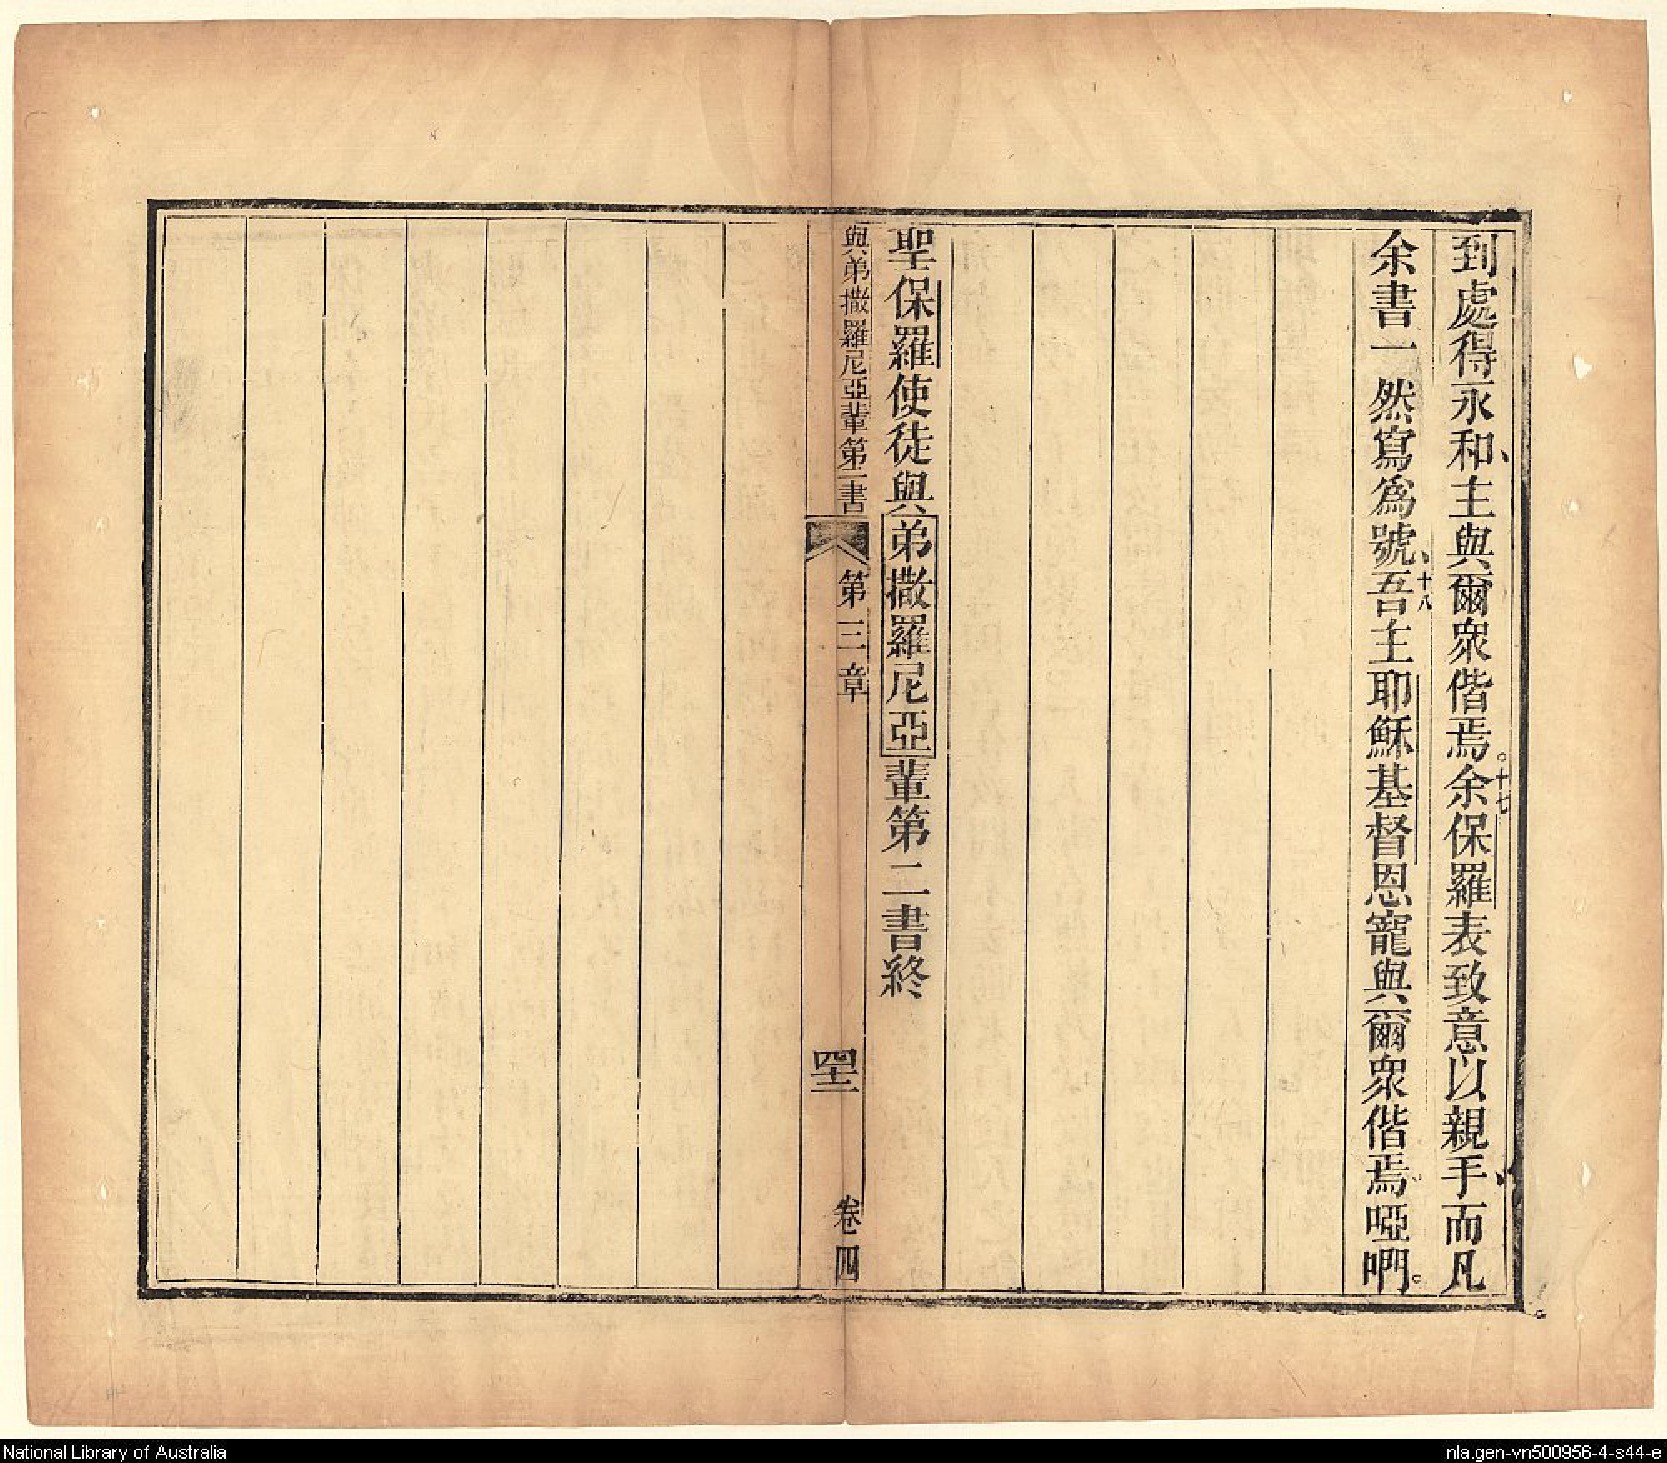 到處得永和、主與爾眾偕焉。十七余保羅表致意以親手、而凡
余書一然寫為號、十八吾主耶穌基督恩寵與爾眾偕焉啞唎。
聖保羅使徒與弟撒羅尼亞輩第二書終
與弟撒羅尼亞輩第二書
第三章
卷四
National Library of Australia
nla.gen-vn500956-4-s44-e